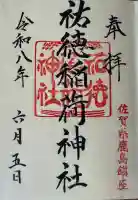 奉拝
佐賀県鹿島鎮座
祐徳稲荷神社
令和八年
六月五日